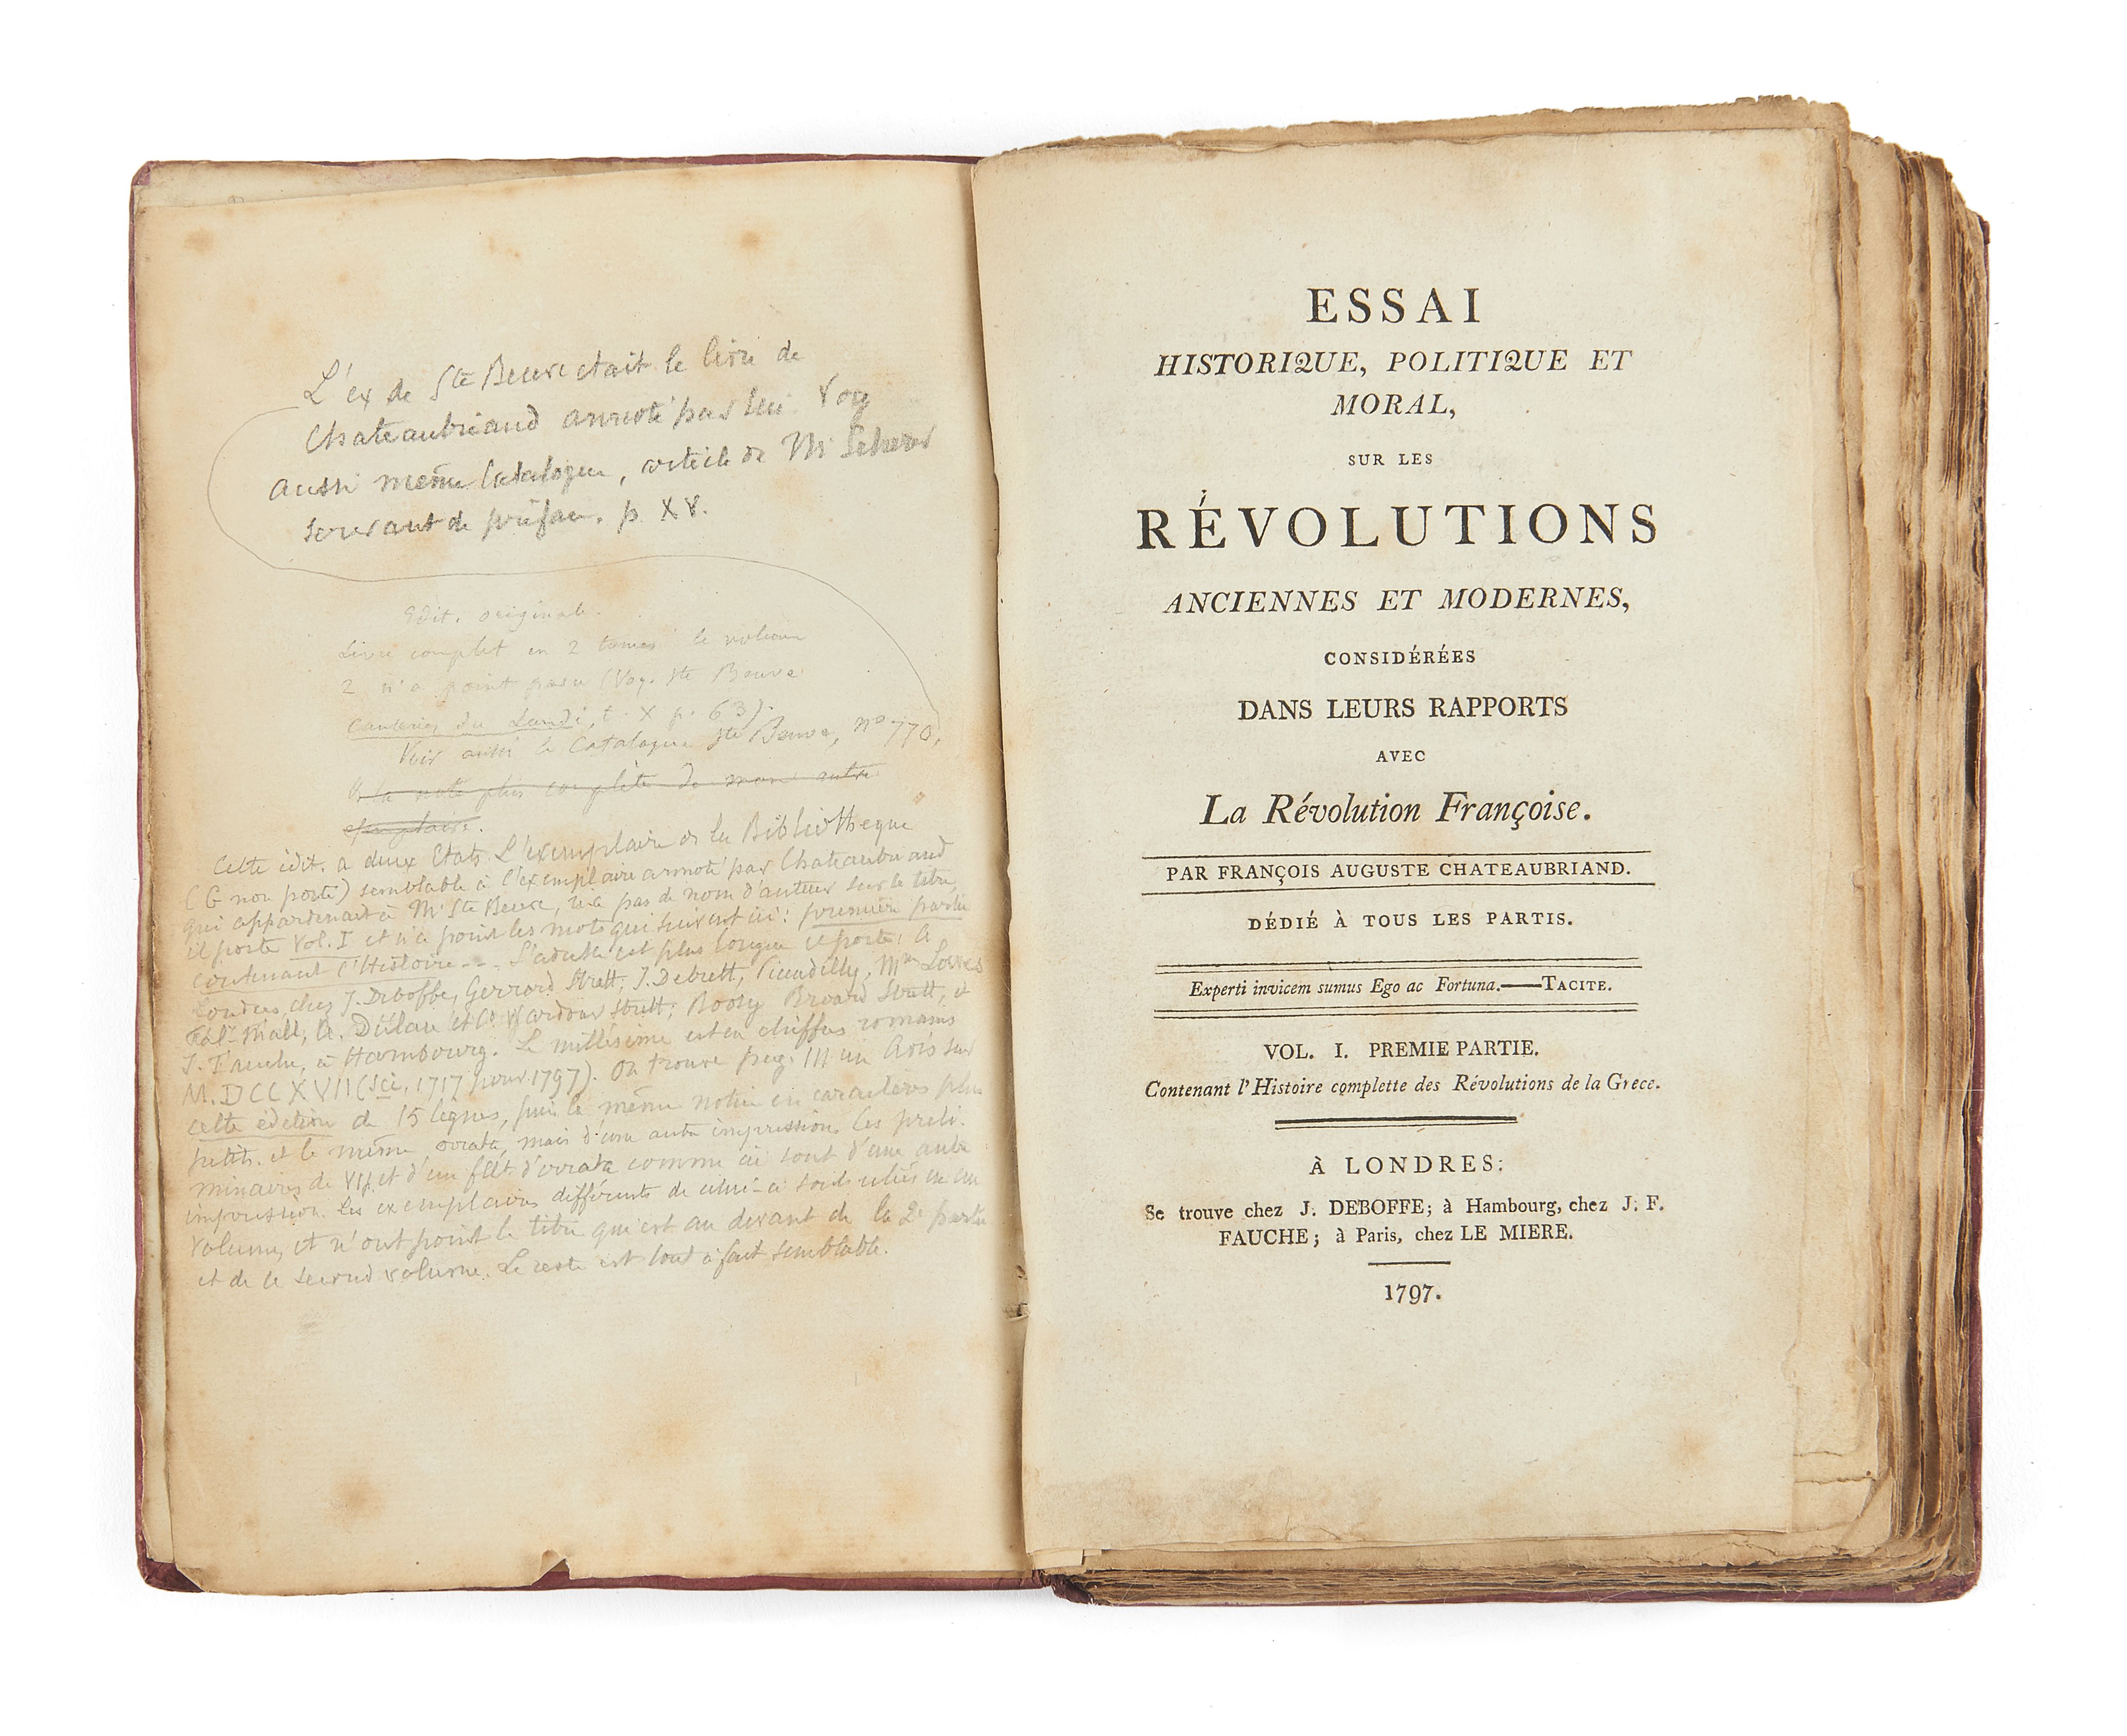 L'ex de Ste Beuve était le livre de
Chateaubriand annoté par lui. Voy
aussi même Catalogue, article de Mr Scherer
servant de préface. p. XV.
Edit. originale.
Livre complet en 2 tomes le volume
2 n'a point paru (Voy. Ste Beuve
Causeries du Lundi, t. X p. 63).
Voir aussi le Catalogue Ste Beuve, no 770,
la note plus complète de mon autre
exemplaire.
Cette édit. a deux Etats. L'exemplaire de la Bibliothèque
(G non porté) semblable à l'exemplaire annoté par Chateaubriand
qui appartenait à Mr Ste Beuve, n'a pas de nom d'auteur sur le titre,
il porte Vol. I et n'a point les mots qui suivent ici: première partie
contenant l'Histoire --- L'adresse est plus longue il porte: A
Londres, chez J. Deboffe, Gerrard Strett, J. Debrett, Piccadilly, Mrs Lowes
Pall-Mall, A. Dulau et Co Wardour Strett; Boosy Broard Strett, et
J. F. Fauche, à Hambourg. Le millésime est en chiffres romains
M.DCCXVII (sic, 1717 pour 1797). On trouve pag. III un Avis sur
cette édition de 15 lignes, puis la même notice en caractères plus
petits. et le même errata, mais d'une autre impression. Les préli-
minaires de VIp. et d'un flet d'errata comme ici sont d'une autre
impression. Les exemplaires différents de celui-ci sont reliés en un
volume, et n'ont point le titre qui est au devant de la 2e partie
et de le second volume. Le reste est tout à fait semblable.
ESSAI
HISTORIQUE, POLITIQUE ET
MORAL,
SUR LES
RÉVOLUTIONS
ANCIENNES ET MODERNES,
CONSIDÉRÉES
DANS LEURS RAPPORTS
AVEC
La Révolution Françoise.
PAR FRANÇOIS AUGUSTE CHATEAUBRIAND.
DÉDIÉ À TOUS LES PARTIS.
Experti invicem sumus Ego ac Fortuna.——TACITE.
VOL. I. PREMIE PARTIE.
Contenant l'Histoire complette des Révolutions de la Grece.
À LONDRES:
Se trouve chez J. DEBOFFE; à Hambourg, chez J. F.
FAUCHE; à Paris, chez LE MIERE.
1797.